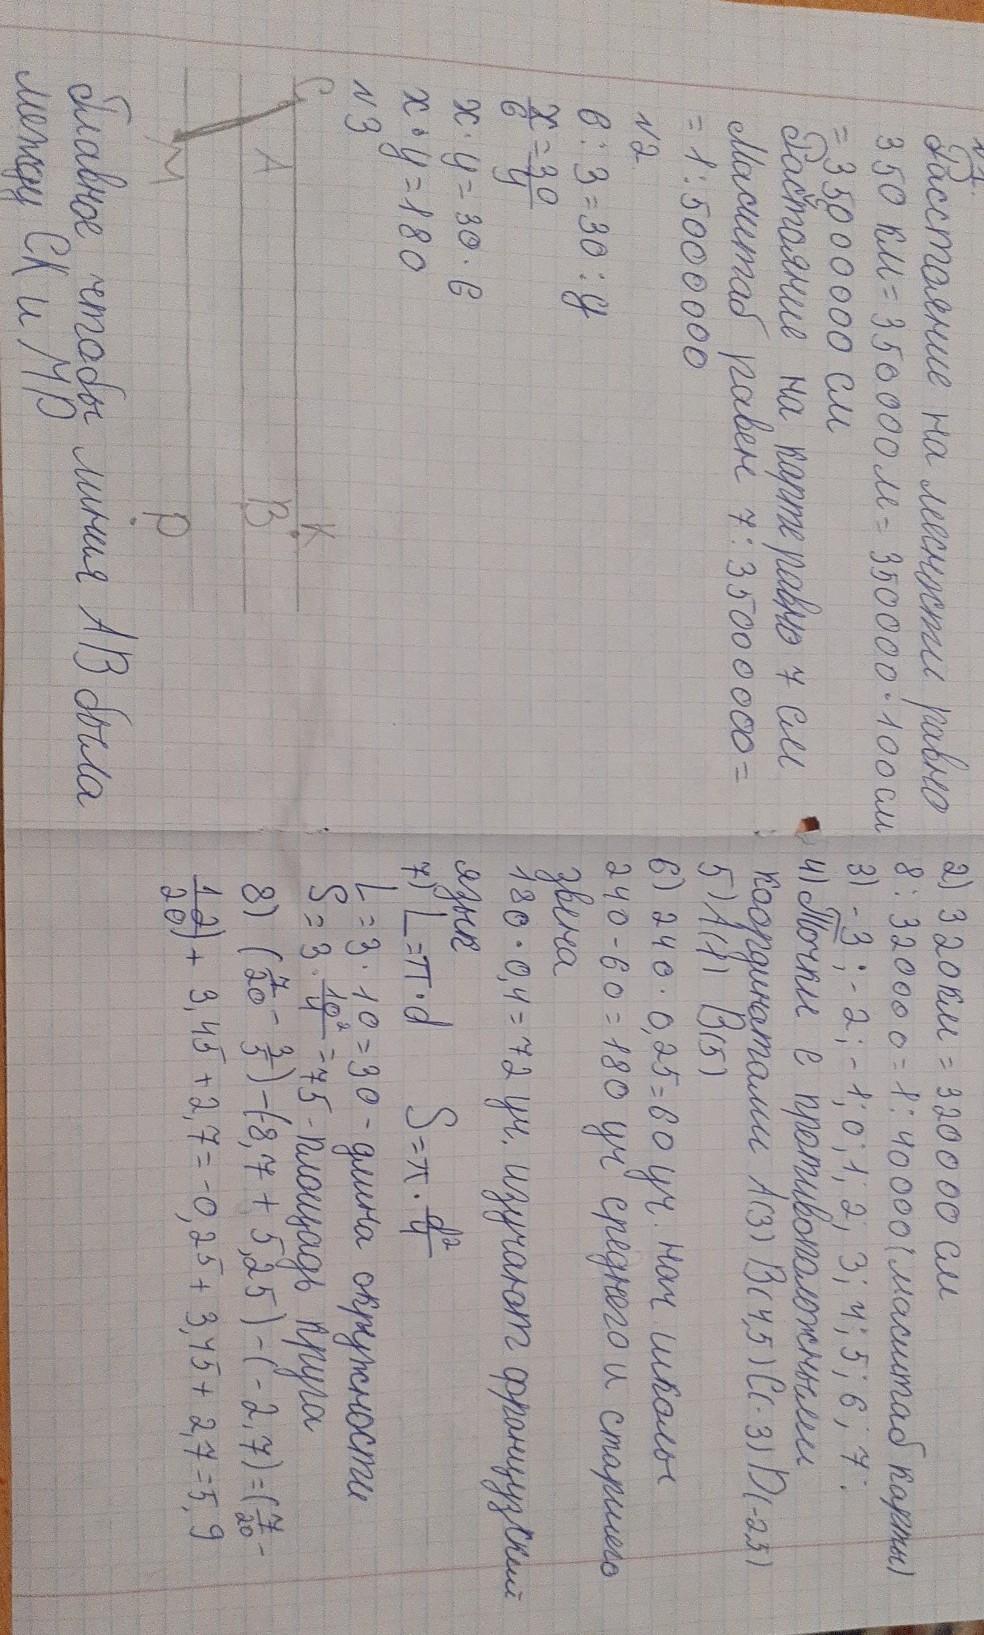 №1.
Расстояние на месности равно
350 км = 350000 м = 350000 · 100 см
= 35000000 см
Растояние на карте равно 7 см
Масштаб равен 7 : 35000000 =
= 1 : 5000000
№2
6 : 3 = 30 : y
x/6 = 30/y
x · y = 30 · 6
x · y = 180
№3
C K
A B
M P
Главное чтобы линия AB была
между CK и MP
2) 320км = 320000 см
8 : 320000 = 1 : 40000 (масштаб карты)
3) -3; -2; -1; 0; 1; 2; 3; 4; 5; 6; 7.
4) Точки с противоположными
координатами A(3) B(4,5) C(-3) D(-2,5)
5) A(1) B(5)
6) 240 · 0,25 = 60 уч. нач. школы
240 - 60 = 180 уч среднего и старшего
звена
180 · 0,4 = 72 уч. изучают французский
язык
7) L = π · d S = π · d²/4
L = 3 · 10 = 30 - длина окружности
S = 3 · 10²/4 = 75 - площадь круга
8) (7/20 - 3/5) - (-8,7 + 5,25) - (-2,7) = (7/20 -
12/20) + 3,45 + 2,7 = -0,25 + 3,45 + 2,7 = 5,9